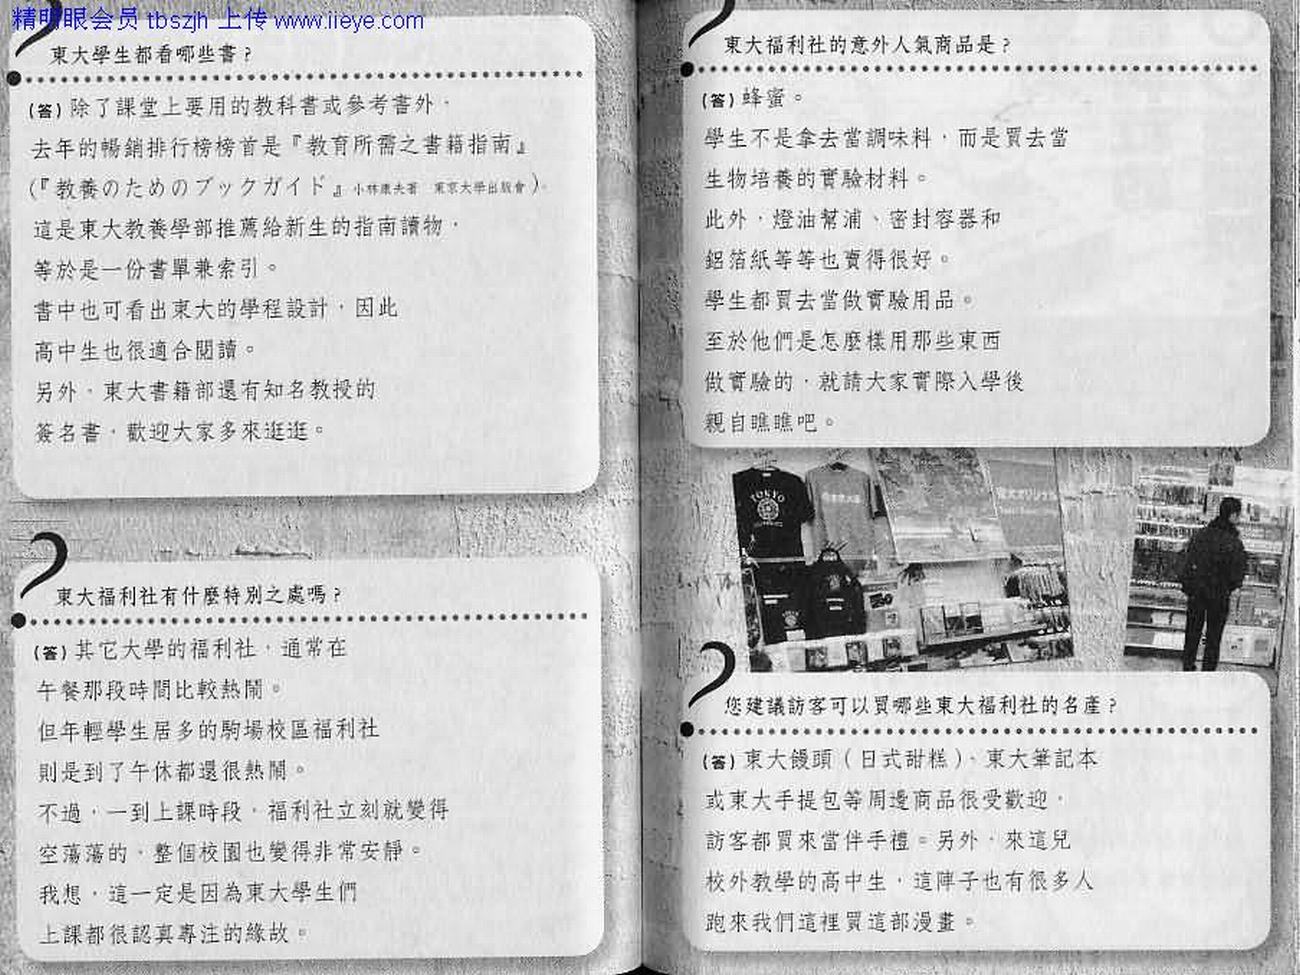 精明眼会员 tbszjh 上传 www.iieye.com
東大學生都看哪些書？
（答）除了課堂上要用的教科書或參考書外，
去年的暢銷排行榜榜首是『教育所需之書籍指南』
（『教養のためのブックガイド』小林康夫著　東京大學出版會）。
這是東大教養學部推薦給新生的指南讀物，
等於是一份書單兼索引。
書中也可看出東大的學程設計，因此
高中生也很適合閱讀。
另外，東大書籍部還有知名教授的
簽名書，歡迎大家多來逛逛。
東大福利社有什麼特別之處嗎？
（答）其它大學的福利社，通常在
午餐那段時間比較熱鬧。
但年輕學生居多的駒場校區福利社
則是到了午休都還很熱鬧。
不過，一到上課時段，福利社立刻就變得
空蕩蕩的，整個校園也變得非常安靜。
我想，這一定是因為東大學生們
上課都很認真專注的緣故。
東大福利社的意外人氣商品是？
（答）蜂蜜。
學生不是拿去當調味料，而是買去當
生物培養的實驗材料。
此外，燈油幫浦、密封容器和
鋁箔紙等等也賣得很好。
學生都買去當做實驗用品。
至於他們是怎麼樣用那些東西
做實驗的，就請大家實際入學後
親自瞧瞧吧。
TOKYO
東大オリジナル
您建議訪客可以買哪些東大福利社的名產？
（答）東大饅頭（日式甜糕）、東大筆記本
或東大手提包等周邊商品很受歡迎，
訪客都買來當伴手禮。另外，來這兒
校外教學的高中生，這陣子也有很多人
跑來我們這裡買這部漫畫。